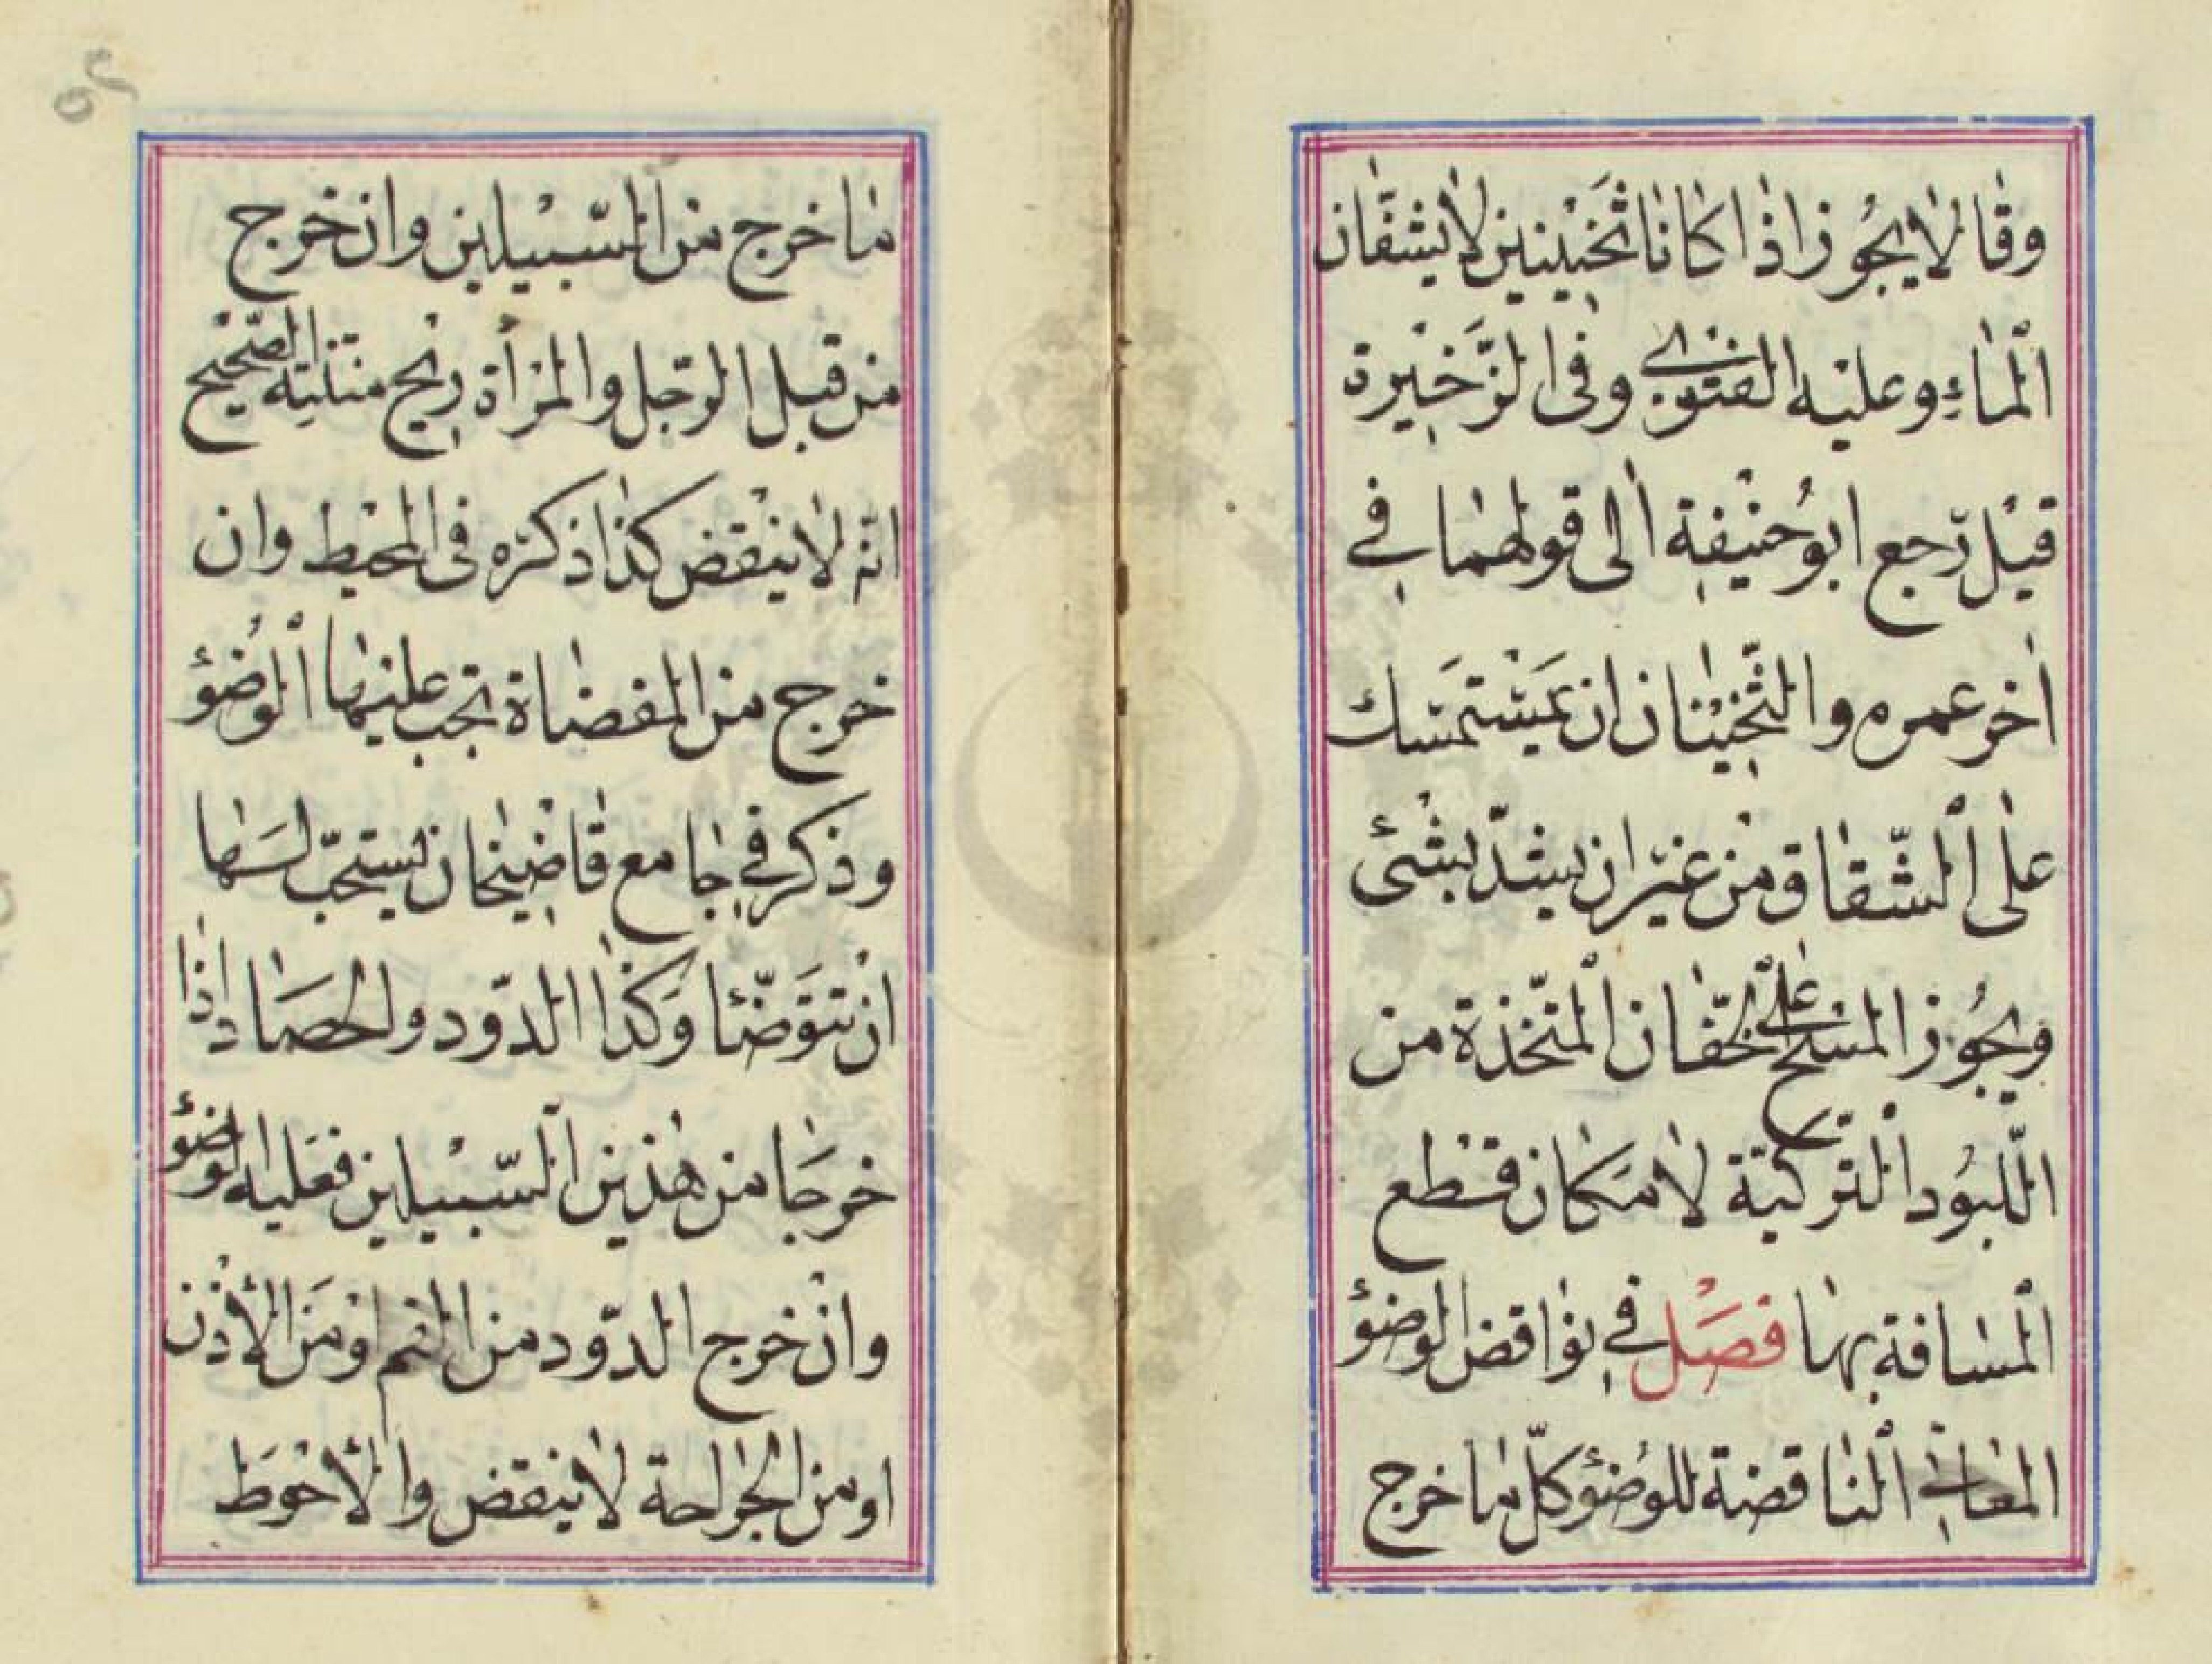 وقالا يجوز اذا كانا ثخينين لا يشفّان
الماء وعليه الفتوى وفى الزّخيرة
قيل رجع ابو حنيفة الى قولهما في
اخر عمره والثّخينان ان يمسّتمسك
على الشّقاق من غير ان يشدّ بشئ
ويجوز المسح على الخّفان المتّخذة من
اللّبود التركيّة لامكان قطع
المسافة بها فصل في نواقض الوضؤ
المعانى الناقضة للوضؤ كلّ ما خرج
ما خرج من السّبيلين وان خرج
من قبل الرّجل والمرأة ريح منتنته الصّحيح
انّه لا ينقض كذا ذكره فى المحيط وان
خرج من المفضاة تجب عليها الوضؤ
وذكر في جامع قاضيخان يستحبّ لسها
ان تتوضّئا وكذا الدّود ولحصاد اذا
خرجا من هذين السّبيلين فعليه لوضؤ
وان خرج الدّود من الفم او من الأذن
او من الجراحة لا ينقض والأحوط